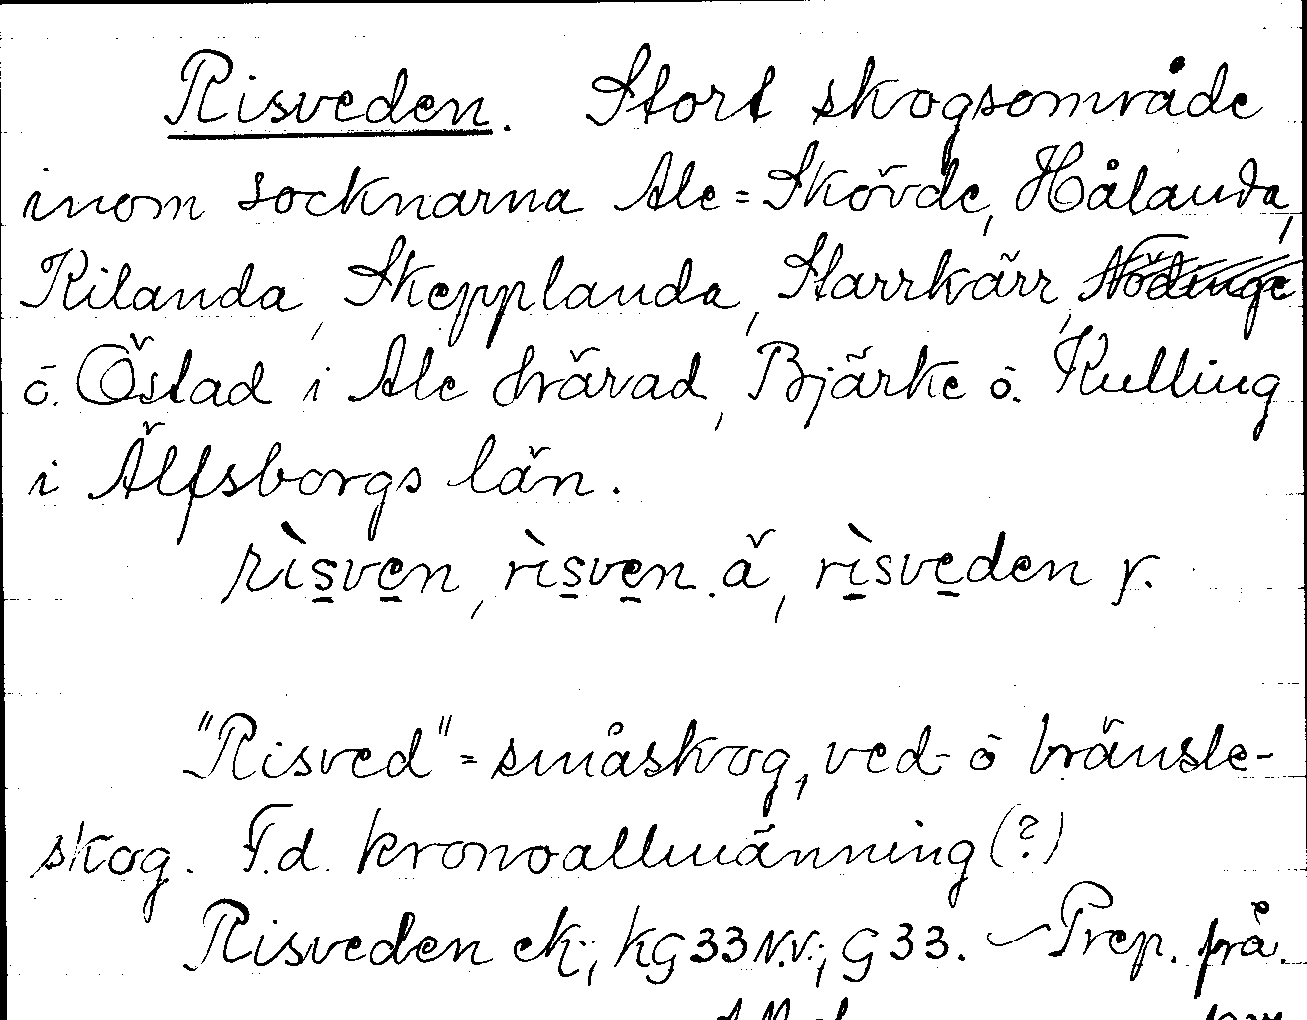 Risveden. Stort skogsområde
inom socknarna Ale=Skövde, Hålanda,
Kilanda, Skepplanda, Starrkärr, Nödinge
o. Östad i Ale härad, Bjärke o. Kulling
i Älfsborgs län.
rìsven, rìsven.ä, rìsveden r.
"Risved"= småskog, ved- o bränsle-
skog. F.d. kronoallmänning (?)
Risveden ek.; KG 33 N.V.; G 33. — Prep. på.